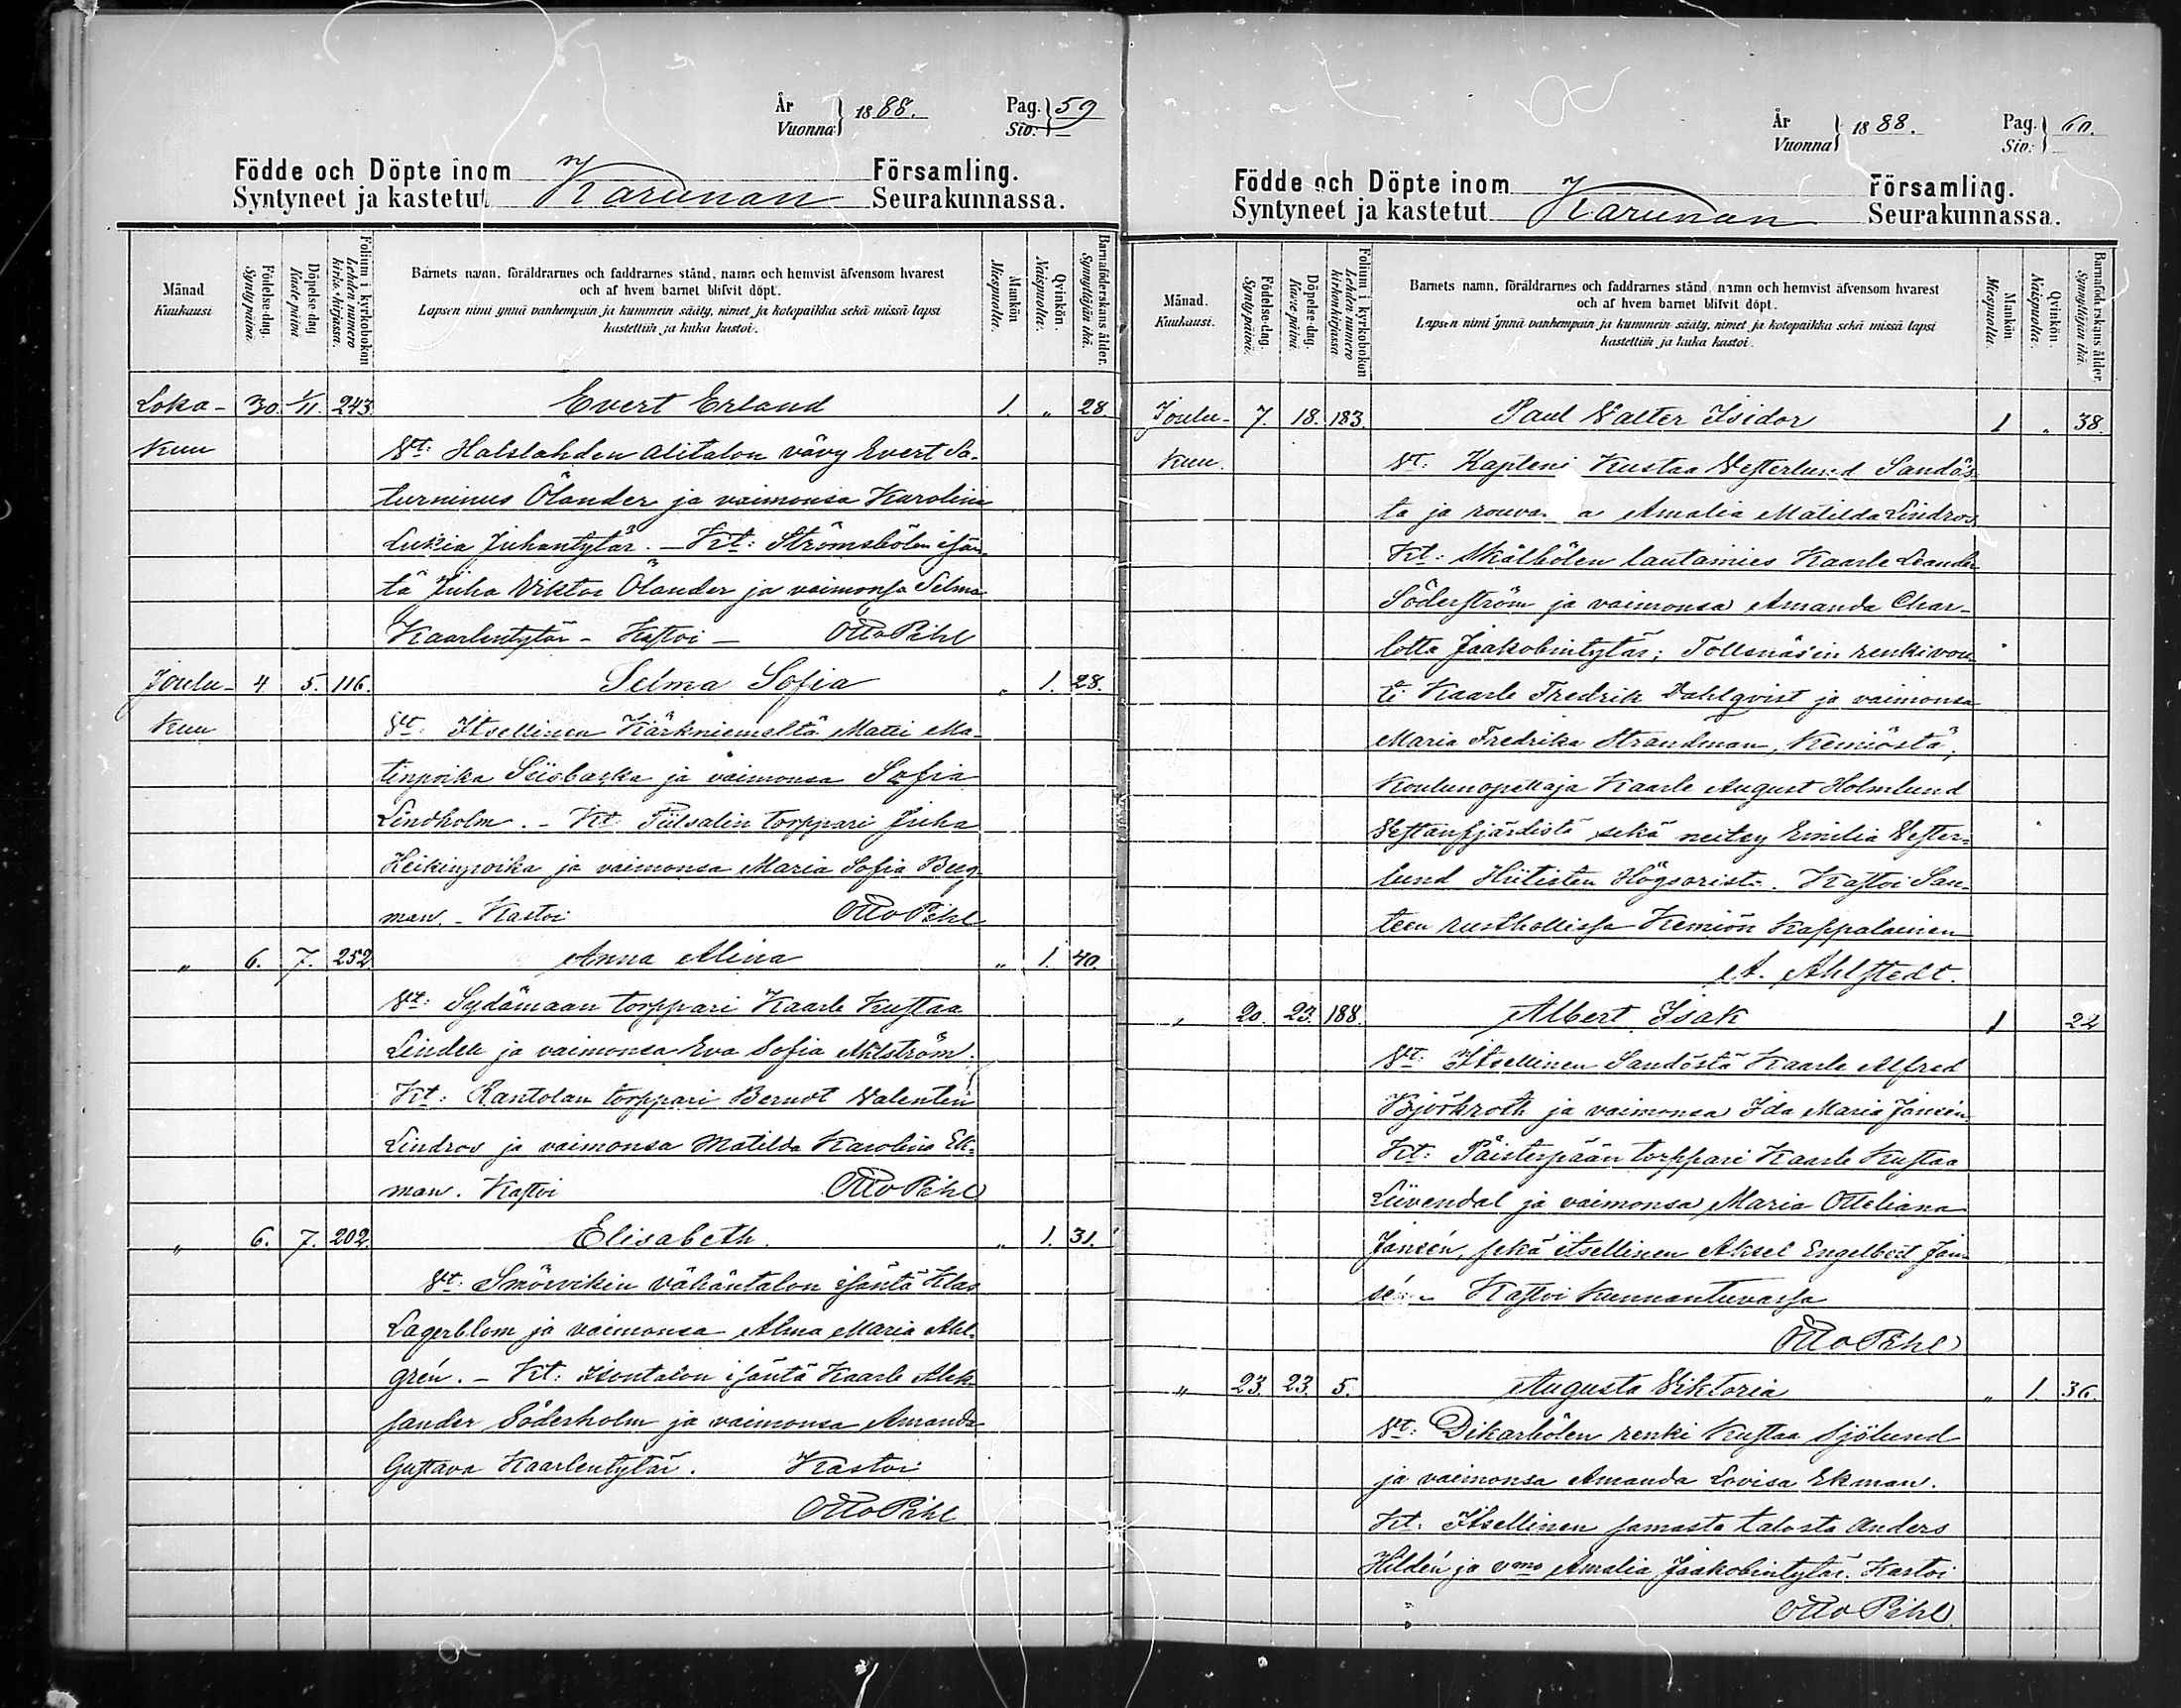 År
Vuonna } 1888.
Pag.
Siv: } 59
Födde och Döpte inom
Syntyneet ja kastetut Karunan
Församling.
Seurakunnassa.
Månad
Kuukausi
Födelse-dag.
Synty päivä.
Döpelse-dag.
Kaste päivä.
Folium i kyrkobokon
Lehden numero kirkonkirjassa.
Barnets namn, föräldrarnes och faddrarnes stånd, namn och hemvist äfvensom hvarest
och af hvem barnet blifvit döpt.
Lapsen nimi ynnä vanhempain ja kummein sääty, nimet ja kotopaikka sekä missä lapsi
kastettiin ja kuka kastoi.
Mankön
Miespuolia.
Qvinkön.
Naispuolia.
Barnaföderskans ålder.
Synnyttäjän ikä.
Loka- 30. 1/11. 243. Evert Erland 1. „ 28.
kuu Vt: Halslahden Alitalon vävy Evert Sa-
turninus Ölander ja vaimonsa Karolina
Lukia Juhantytär. — Kt: Strömsbölen isän-
tä Juha Viktor Ölander ja vaimonsa Selma
Kaarlentytär - Kastoi — Otto Pihl
Joulu- 4 5. 116. Selma Sofia „ 1. 28.
kuu Vt: Itsellinen Kärkniemeltä Matti Ma-
tinpoika ja vaimonsa Sofia
Lindholm. - Kt: Piilsalin torppari Juha
Heikinpoika ja vaimonsa Maria Sofia Berg-
man. - Kastoi Otto Pihl
„ 6. 7. 252. Anna Alina „ 1. 40.
Vt: Sydämaan torppari Kaarle Kustaa
Lindell ja vaimonsa Eva Sofia Ahlström.
Kt: Rantolan torppari Berndt Valentin
Lindros ja vaimonsa Matilda Karolina Ek-
man. Kastoi Otto Pihl
„ 6. 7. 202. Elisabeth. „ 1. 31.
Vt: Smörvikin vähäntalon isäntä Klas
Lagerblom ja vaimonsa Alma Maria Ahl-
grén. - Kt: Isontalon isäntä Kaarle Alek-
sander Söderholm ja vaimonsa Amanda
Gustava Kaarlentytär. Kastoi
Otto Pihl
År
Vuonna } 1888.
Pag.
Siv: } 60.
Födde och Döpte inom
Syntyneet ja kastetut Karunan
Församling.
Seurakunnassa.
Månad.
Kuukausi.
Födelse-dag.
Synty päivä.
Döpelse-dag.
Kaste päivä.
Folium i kyrkobokon
Lehden numero kirkonkirjassa
Barnets namn, föräldrarnes och faddrarnes stånd, namn och hemvist äfvensom hvarest
och af hvem barnet blifvit döpt.
Lapsen nimi ynnä vanhempain ja kummein sääty, nimet ja kotopaikka sekä missä lapsi
kastettiin ja kuka kastoi.
Mankön
Miespuolia.
Qvinkön.
Naispuolia.
Barnaföderskans ålder.
Synnyttäjän ikä.
Joulu- 7. 18. 183. Paul Walter Isidor 1 „ 38.
kuu. Vt: Kapteni Kustaa Vesterlund Sandös-
ta ja rouva a Amalia Matilda Lindros
Kt: Skålbölen lautamies Kaarle Leander
Söderström ja vaimonsa Amanda Char-
lotta Jaakobintytär; Tollsnäsin renkivou-
ti Kaarle Fredrik Dahlqvist ja vaimonsa
Maria Fredrika Strandman, Kemiöstä;
Koulunopettaja Kaarle August Holmlund
Vestanfjärdistä sekä neitsy Emilia Vester-
lund Hiitisten Högsarista. Kastoi San-
teen rusthollissa Kemiön Kappalainen
A. Ahlstedt.
„ 20. 23. 188. Albert Isak 1 22
Vt: Itsellinen Sandöstä Kaarle Alfred
Björkroth ja vaimonsa Ida Maria Jansén.
Kt: Päisterpään torppari Kaarle Kustaa
Liivendal ja vaimonsa Maria Otteliana
Jansén, sekä itsellinen Aksel Engelbert Jan-
sén - Kastoi Kunnantuvassa
Otto Pihl
„ 23. 23. 5. Augusta Viktoria „ 1. 36.
Vt: Dikarbölen renki Kustaa Sjölund
ja vaimonsa Amanda Lovisa Ekman.
Kt: Itsellinen samasta talosta Anders
Hildén ja vmo Amalia Jaakobintytär. Kastoi
„ Otto Pihl